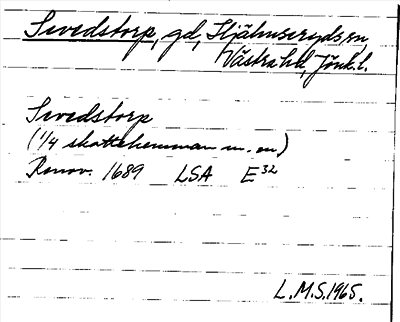 Sevedstorp, gd, Stjälmseryds sn,
Västra hd, Jönk.l.
Sevedstorp
(1/4 skattehemman m. m.)
Renov. 1689 LSA E32
L.M.S. 1965.